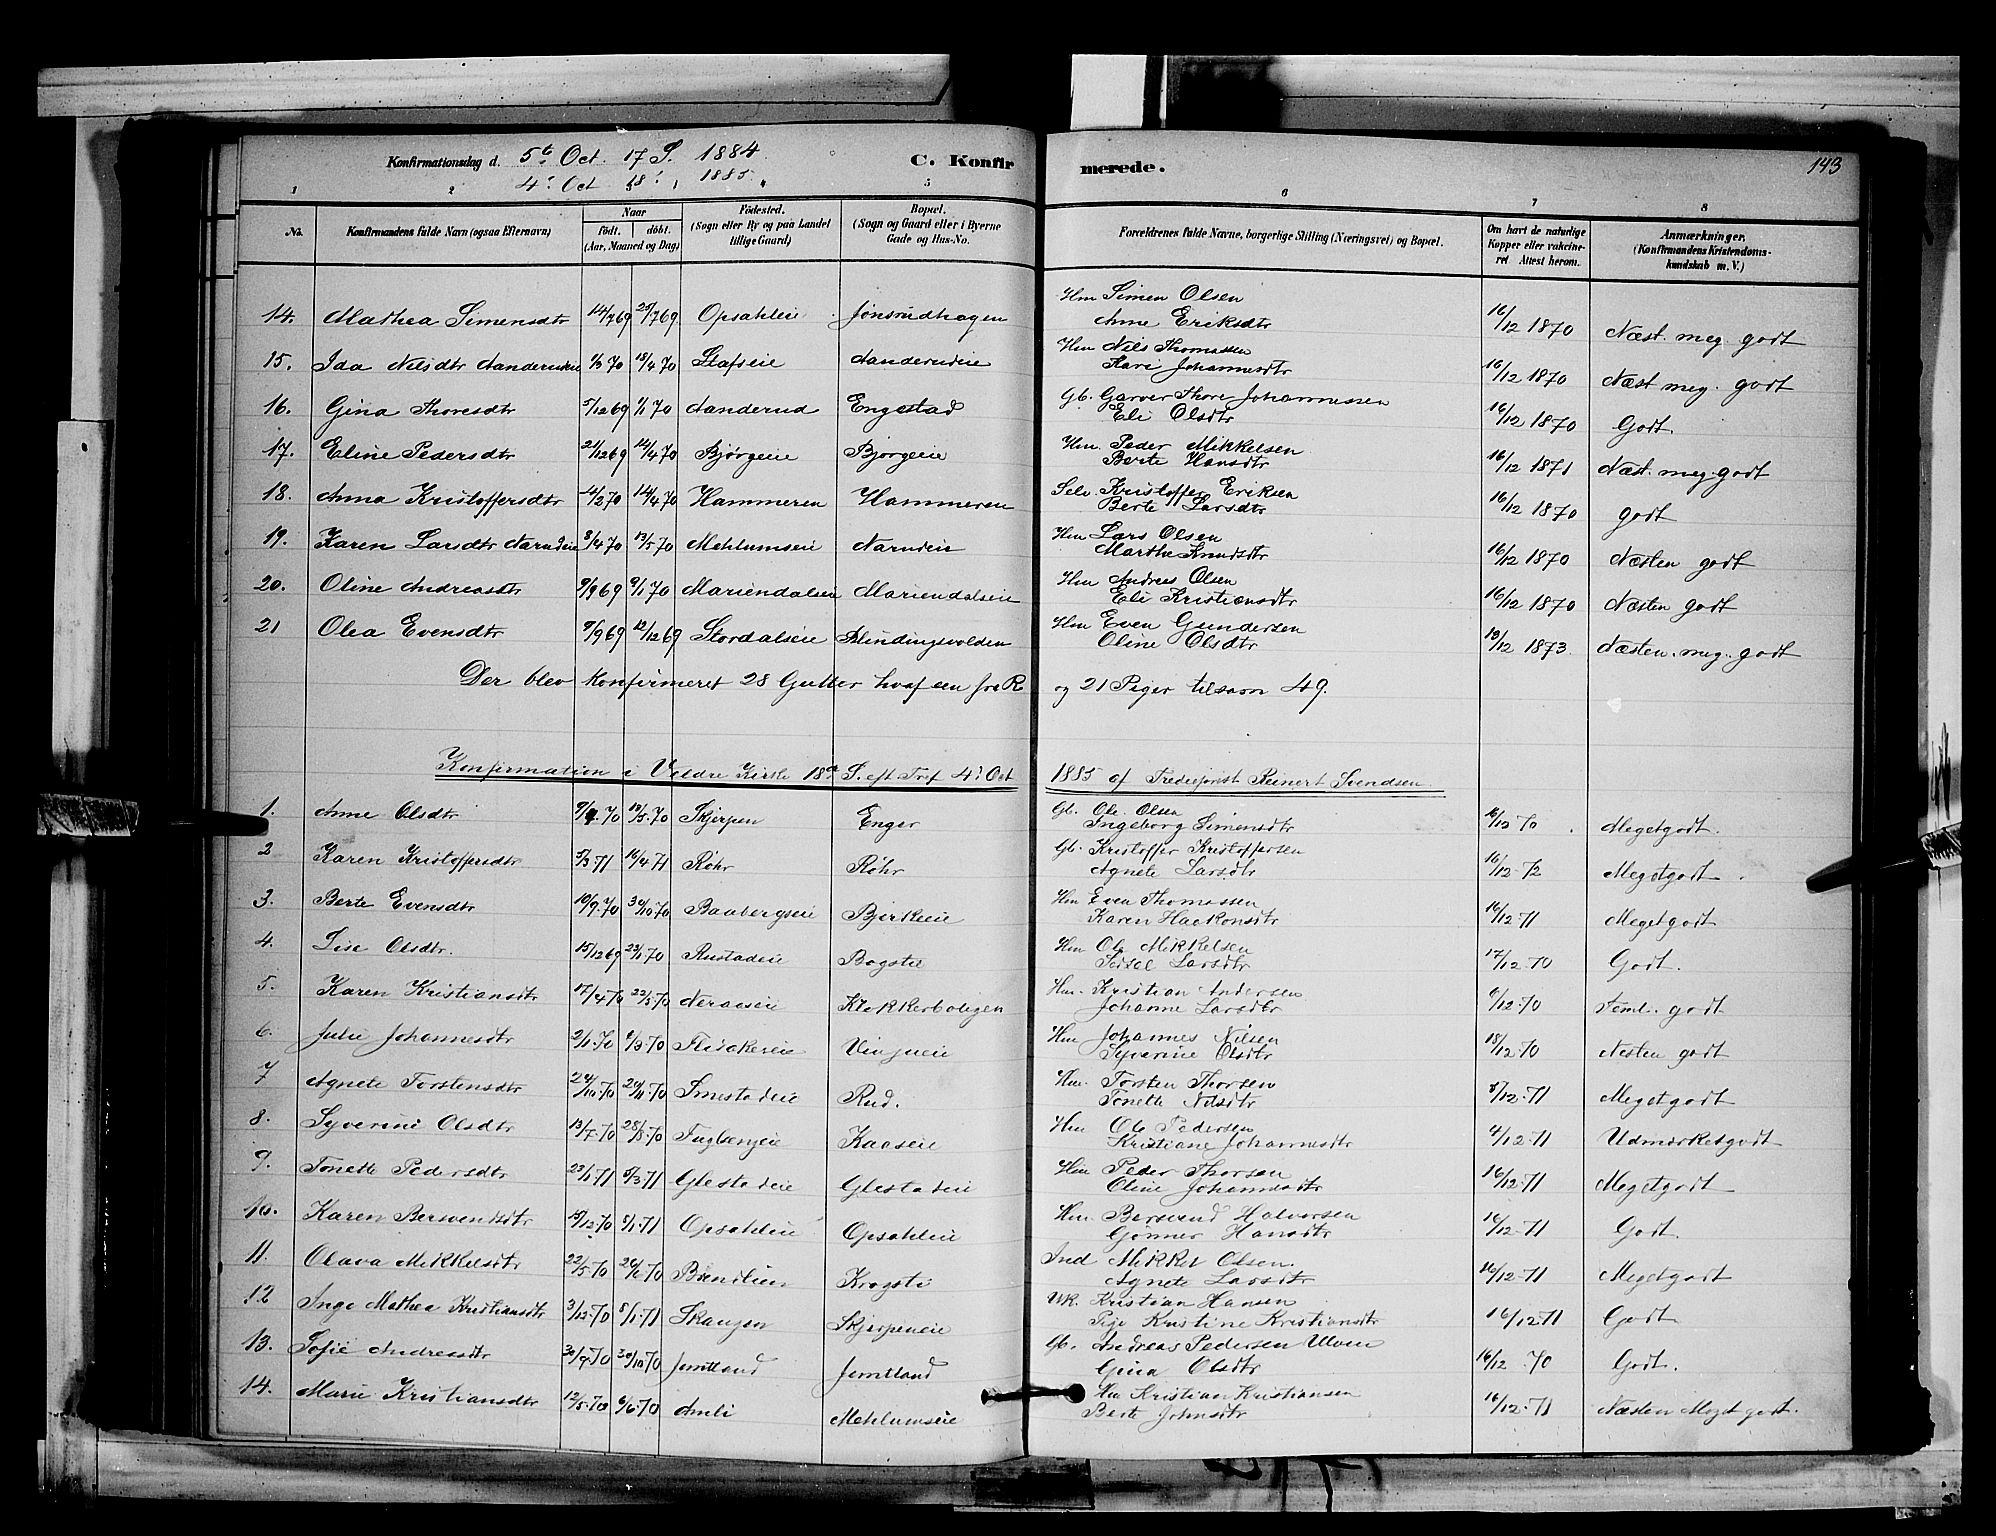 Konfirmationsdag d. 5te Oct. 17 S. 1884. C. Konfirmerede. 143
4de Oct 18de " 1885 "
1 2 5 6 7 8
No. Konfirmandens fulde Navn (ogsaa Efternavn) Naar födt. döbt. (Aar, Maaned og Dag) Födested. (Sogn eller By og paa Landet tillige Gaard) Bopæl. (Sogn og Gaard eller i Byerne Gade og Hus-No. Forældrenes fulde Navne, borgerlige Stilling (Næringsvei) og Bopæl. Om havt de naturlige Kopper eller vakcineret Attest herom. Anmærkninger. (Konfirmandens Kristendomskundskab m. V.)
14. Mathea Simensdtr 14/7 69 25/7 69. Opsahleie Jönsrudhagen Hm Simen Olsen Anne Eriksdtr 16/12 1870 Næst. meg. godt
15. Ida Nilsdtr Aanderudeie 1/3 70 18/4 70 Stafseie Aanderudeie Hm Nils Thomassen Kari Johannesdtr 16/12 1870 Næst meg. godt
16. Gina Thoresdtr 5/12 69 1/1 70 Aanderud Engestad Gb. Garver Thore Johannessen Eli Olsdtr 16/12 1870 Godt.
17. Eline Pedersdtr 21/12 69 14/4 70 Bjørgeie Bjørgeie Hm. Peder Mikkelsen Berte Hansdtr 16/12 1871 Næst. meg. godt
18. Anna Kristoffersdtr 14/2 70 14/4 70 Hammeren Hammeren Selv. Kristoffer Eriksen Berte Larsdtr 16/12 1870 godt
19. Karen Larsdtr Narudeie 8/4 70 13/5 70 Mehlumseie Narudeie Hm Lars Olsen Marthe Knudsdtr 16/12 1870 Næsten godt
20. Oline Andreasdtr 9/9 69 9/1 70 Mariendalseie Mariendalseie Hm Andreas Olsen Eli Kristiansdtr 16/12 1870 Næsten godt
21 Olea Evensdtr 9/9 69 12/12 69 Stordalseie Blindingsvolden Hm Even Gundersen Oline Olsdtr 13/12 1873. Næsten. meg. godt
Der blev konfirmeret 28 Gutter hvaf een fra R og 21 Piger tilsam 49.
Konfirmation i Veldre Kirke 18de S. eft Tref 4de Oct 1885 af Reinert Svendsen.
1. Anne Olsdtr 9/4 70 13/5 70 Skjerpen Enger Gb. Ole Olsen Ingeborg Simensdtr 16/12 70 Megetgodt.
2 Karen Kristoffersdtr 5/3 71 16/4 71 Röhr Röhr Gb. Kristoffer Kristoffersen Agnete Larsdtr 16/12 72 Megetgodt.
3. Berte Evensdtr 10/9 70 30/10 70 Baabergseie Bjerkeie Hm Even Thomassen Karen Haakonsdtr 16/12 71 Megetgodt
4. Lise Olsdtr. 15/12 69 23/1 70 Rustadeie Bogstie Hm Ole Mikkelsen Sidsel Larsdtr 17/12 70 Godt.
5. Karen Kristiansdtr 17/4 70 22/5 70 Neraaseie Klokkerboligen Hm. Kristian Andersen Johanne Larsdtr 6/12 70 Teml. godt
6. Julie Johannesdtr 2/1 70 6/3 70 Flisakereie Vinjueie Hm Johannes Nilsen Syverine Olsdtr 18/12 70 Nesten godt
7 Agnete Torstensdtr 24/10 70 24/11 70 Smestadeie Rud. Hm. Torsten Thorsen Tonette Nilsdtr 8/12 71 Megetgodt
8. Syverine Olsdtr 13/7 70 28/8 70 Fuglsengeie Kaaseie Hm Ole Pedersen Kristiane Johannesdtr 4/12 71 Udmerketgodt
9. Tonette Pedersdtr 23/1 71 5/3 71 Glestadeie Glestadeie Hm Peder Thorsen Oline Johannesdtr 16/12 71 Megetgodt
10. Karen Bersvendsdtr 12/12 70 8/1 71 Opsahleie Opsahleie Hm. Bersvend Halvorsen Gönner Hansdtr 16/12 71 Godt.
11. Olava Mikkelsdtr 22/5 70 26/6 70 Brendlien Krogsti Ind Mikkel Olsen. Agnete Larsdtr 16/12 71 Megetgodt
12 Inga Mathea Kristiansdtr 3/12 70 8/1 71 Skaugen Skjerpeneie Uk. Kristian Hansen Pige Kristine Kristiansdtr 16/12 71 Godt
13. Sofie Andreasdtr 30/9 70 30/10 70 Jemtland Jemtland Gb. Andreas Pedersen Ulven Gina Olsdtr 16/12 70 Godt.
14. Marie Kristiansdtr 12/5 70 6/6 70 Amli Mehlumseie Hm Kristian Kristiansen Berte Johnsdtr 16/12 71 Næsten Meget godt.